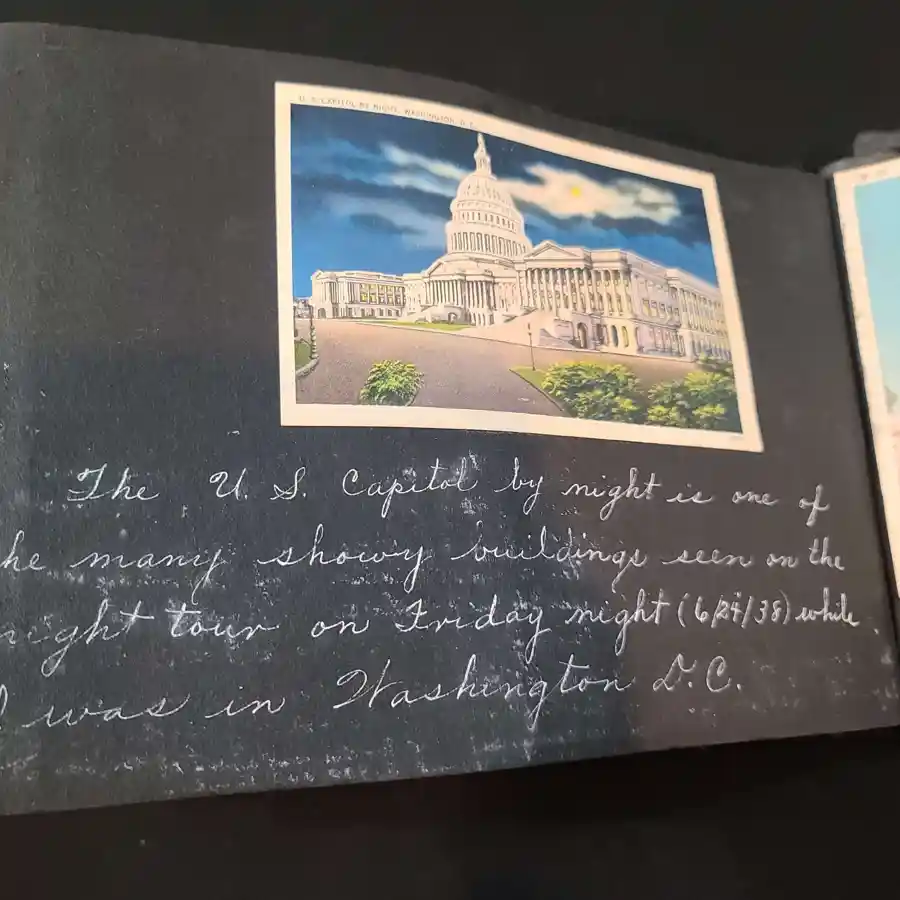 U. S. CAPITOL BY NIGHT, WASHINGTON, D. C.
The U. S. Capitol by night is one of
he many showy buildings seen on the
night tour on Friday night (6/24/38) while
I was in Washington D.C.